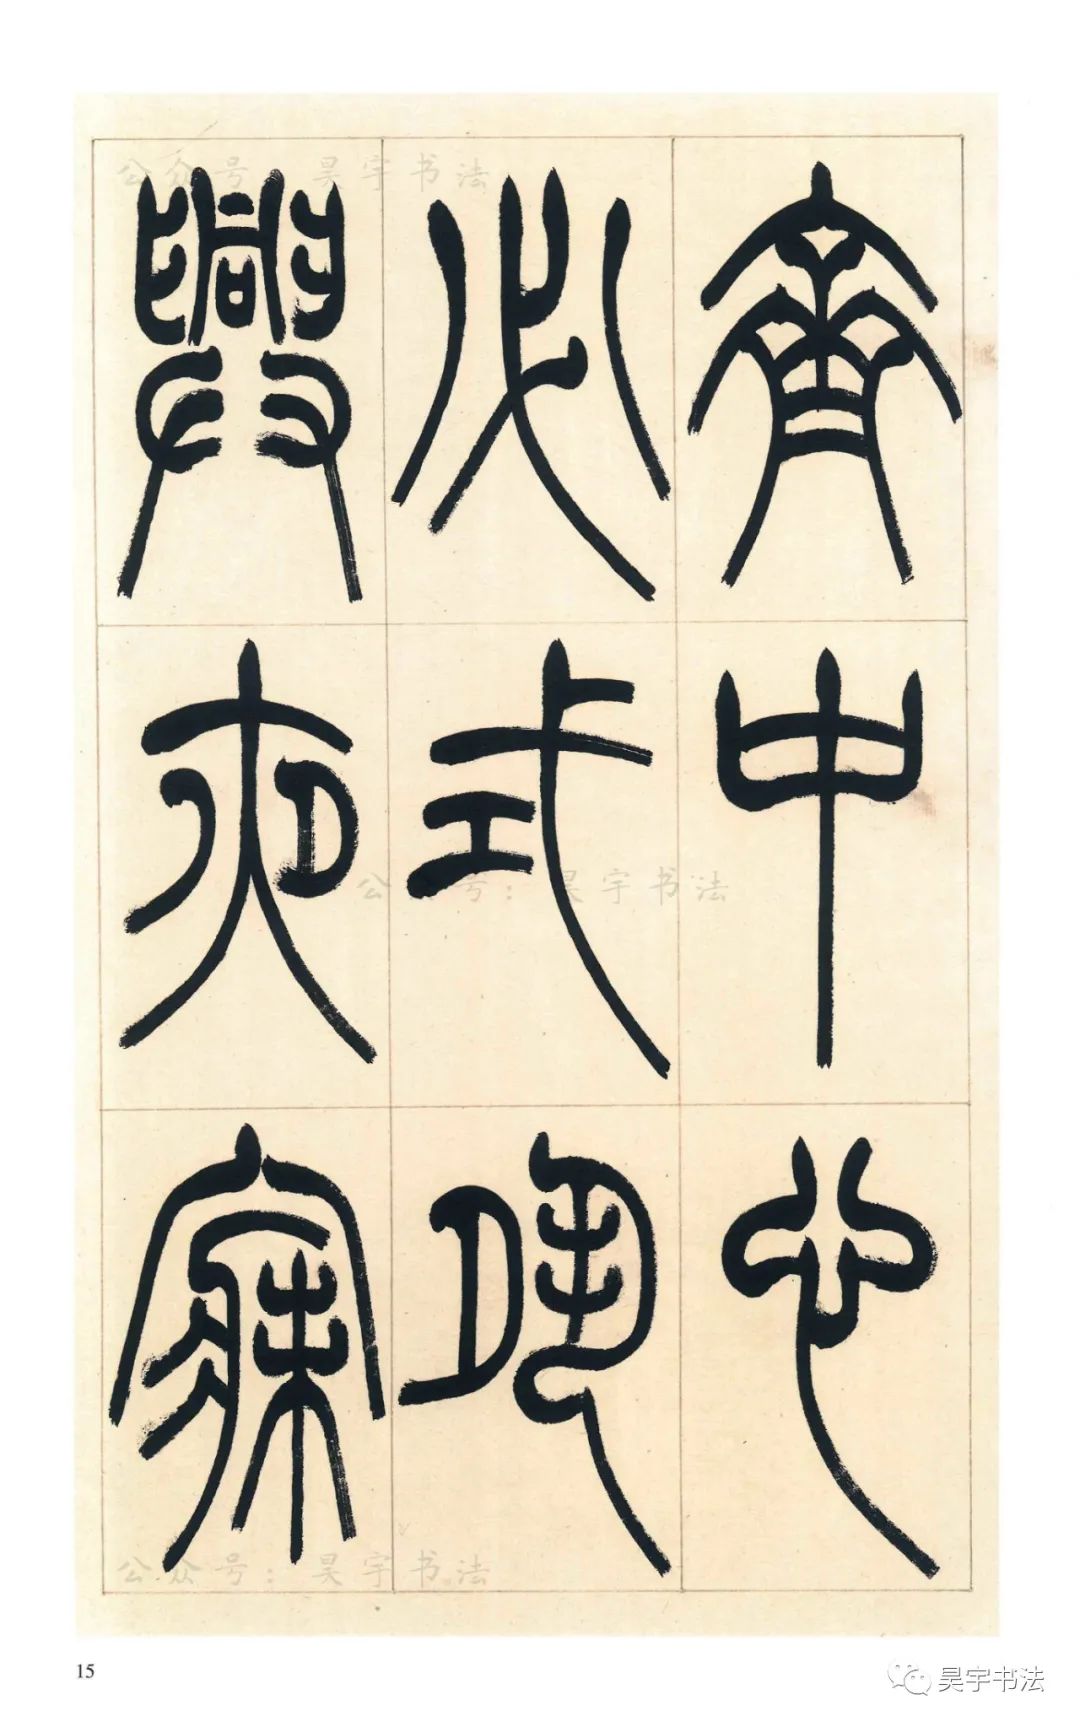 齊中心
必式夙
興夜寐
公众号：昊宇书法
公众号：昊宇书法
公众号：昊宇书法
15
昊宇书法